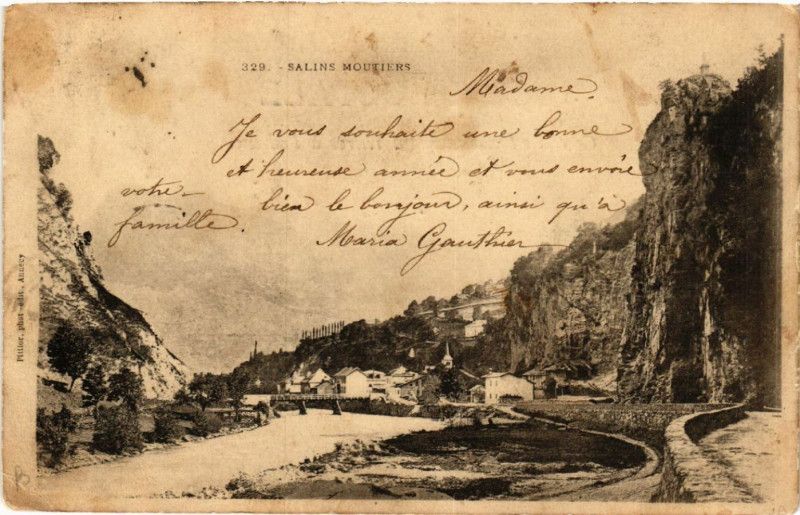 329. - SALINS MOUTIERS
Madame,
Je vous souhaite une bonne
et heureuse année et vous envoie
bien le bonjour, ainsi qu'à
votre
famille.
Maria Gauthier
Pittier, phot-édit., Annecy